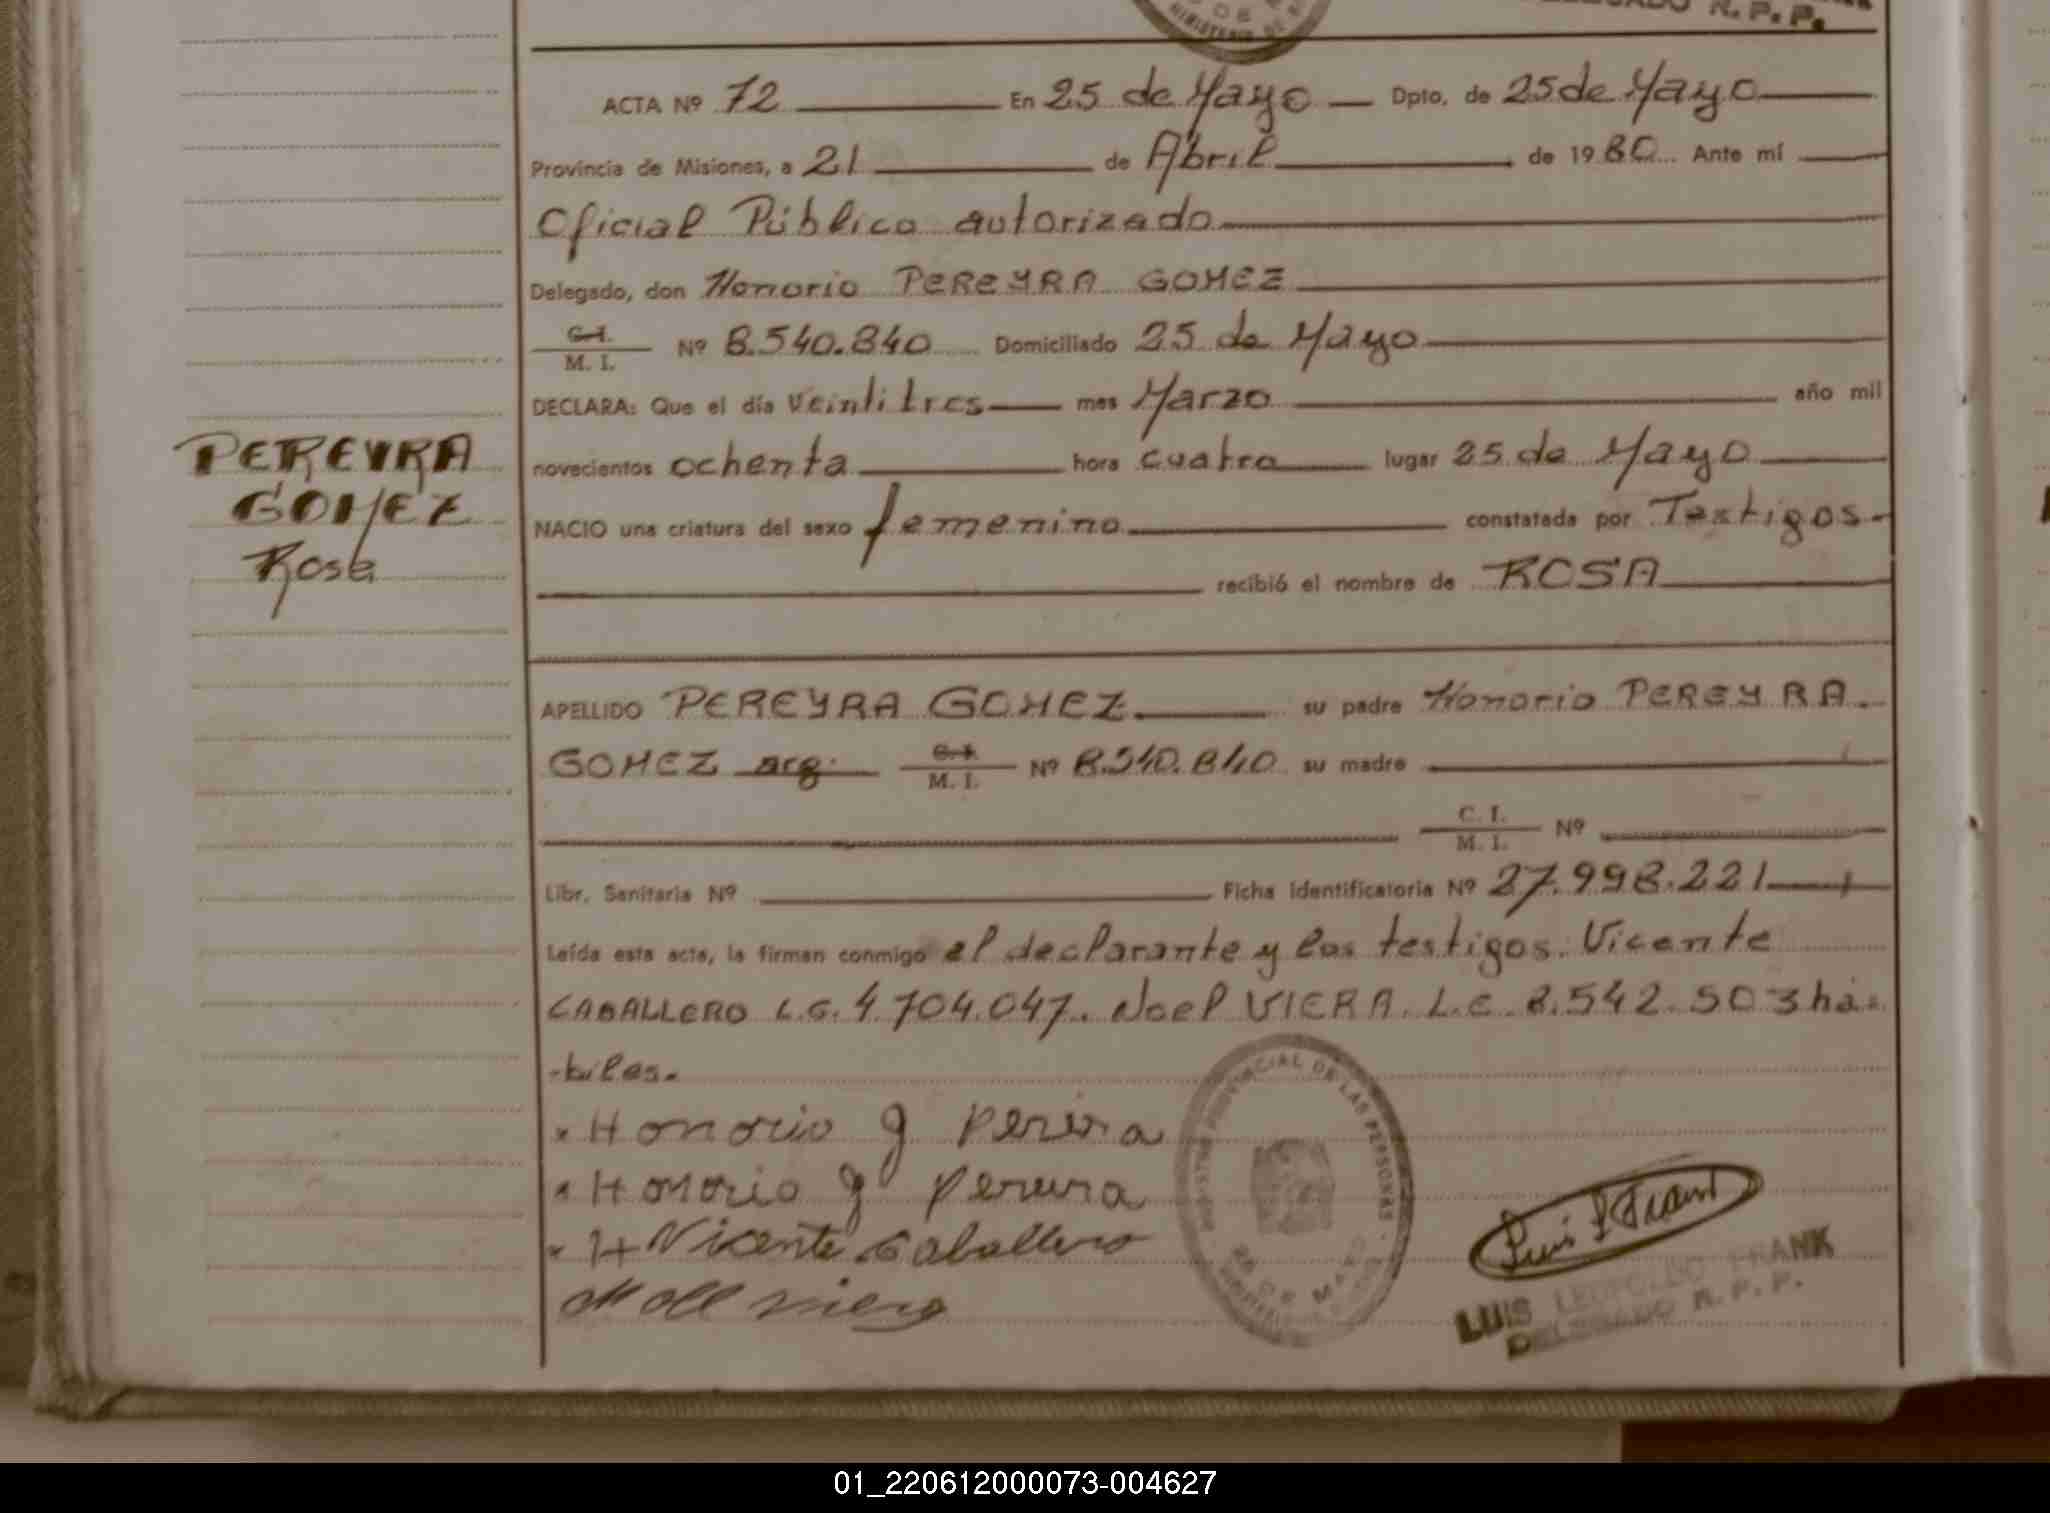 DELEGADO R. P. P.
ACTA Nº 72 En 25 de Mayo Dpto. de 25 de Mayo
Provincia de Misiones, a 21 de Abril de 1980 Ante mí
Oficial Público autorizado
Delegado, don Honorio PEREYRA GOMEZ
C. I.
M. I. Nº 8.540.840 Domiciliado 25 de Mayo
DECLARA: Que el día veintitres mes Marzo año mil
novecientos ochenta hora cuatro lugar 25 de Mayo
PEREYRA
GOMEZ
Rosa
NACIO una criatura del sexo femenino constatada por Testigos
recibió el nombre de ROSA
APELLIDO PEREYRA GOMEZ su padre Honorio PEREYRA
GOMEZ arg. C. I.
M. I. Nº 8.540.840 su madre
C. I.
M. I. Nº
Libr. Sanitaria Nº Ficha Identificatoria Nº 27.998.221
Leída esta acta, la firman conmigo el declarante y los testigos. Vicente
CABALLERO L.E. 4.704.047. Noel VIERA. L.E. 8.542.503 há-
-biles.
Honorio g
Honorio g
Vicente Caballero
REGISTRO PROVINCIAL DE LAS PERSONAS
25 DE MAYO
LUIS LEOPOLDO FRANK
DELEGADO R. P. P.
01_220612000073-004627